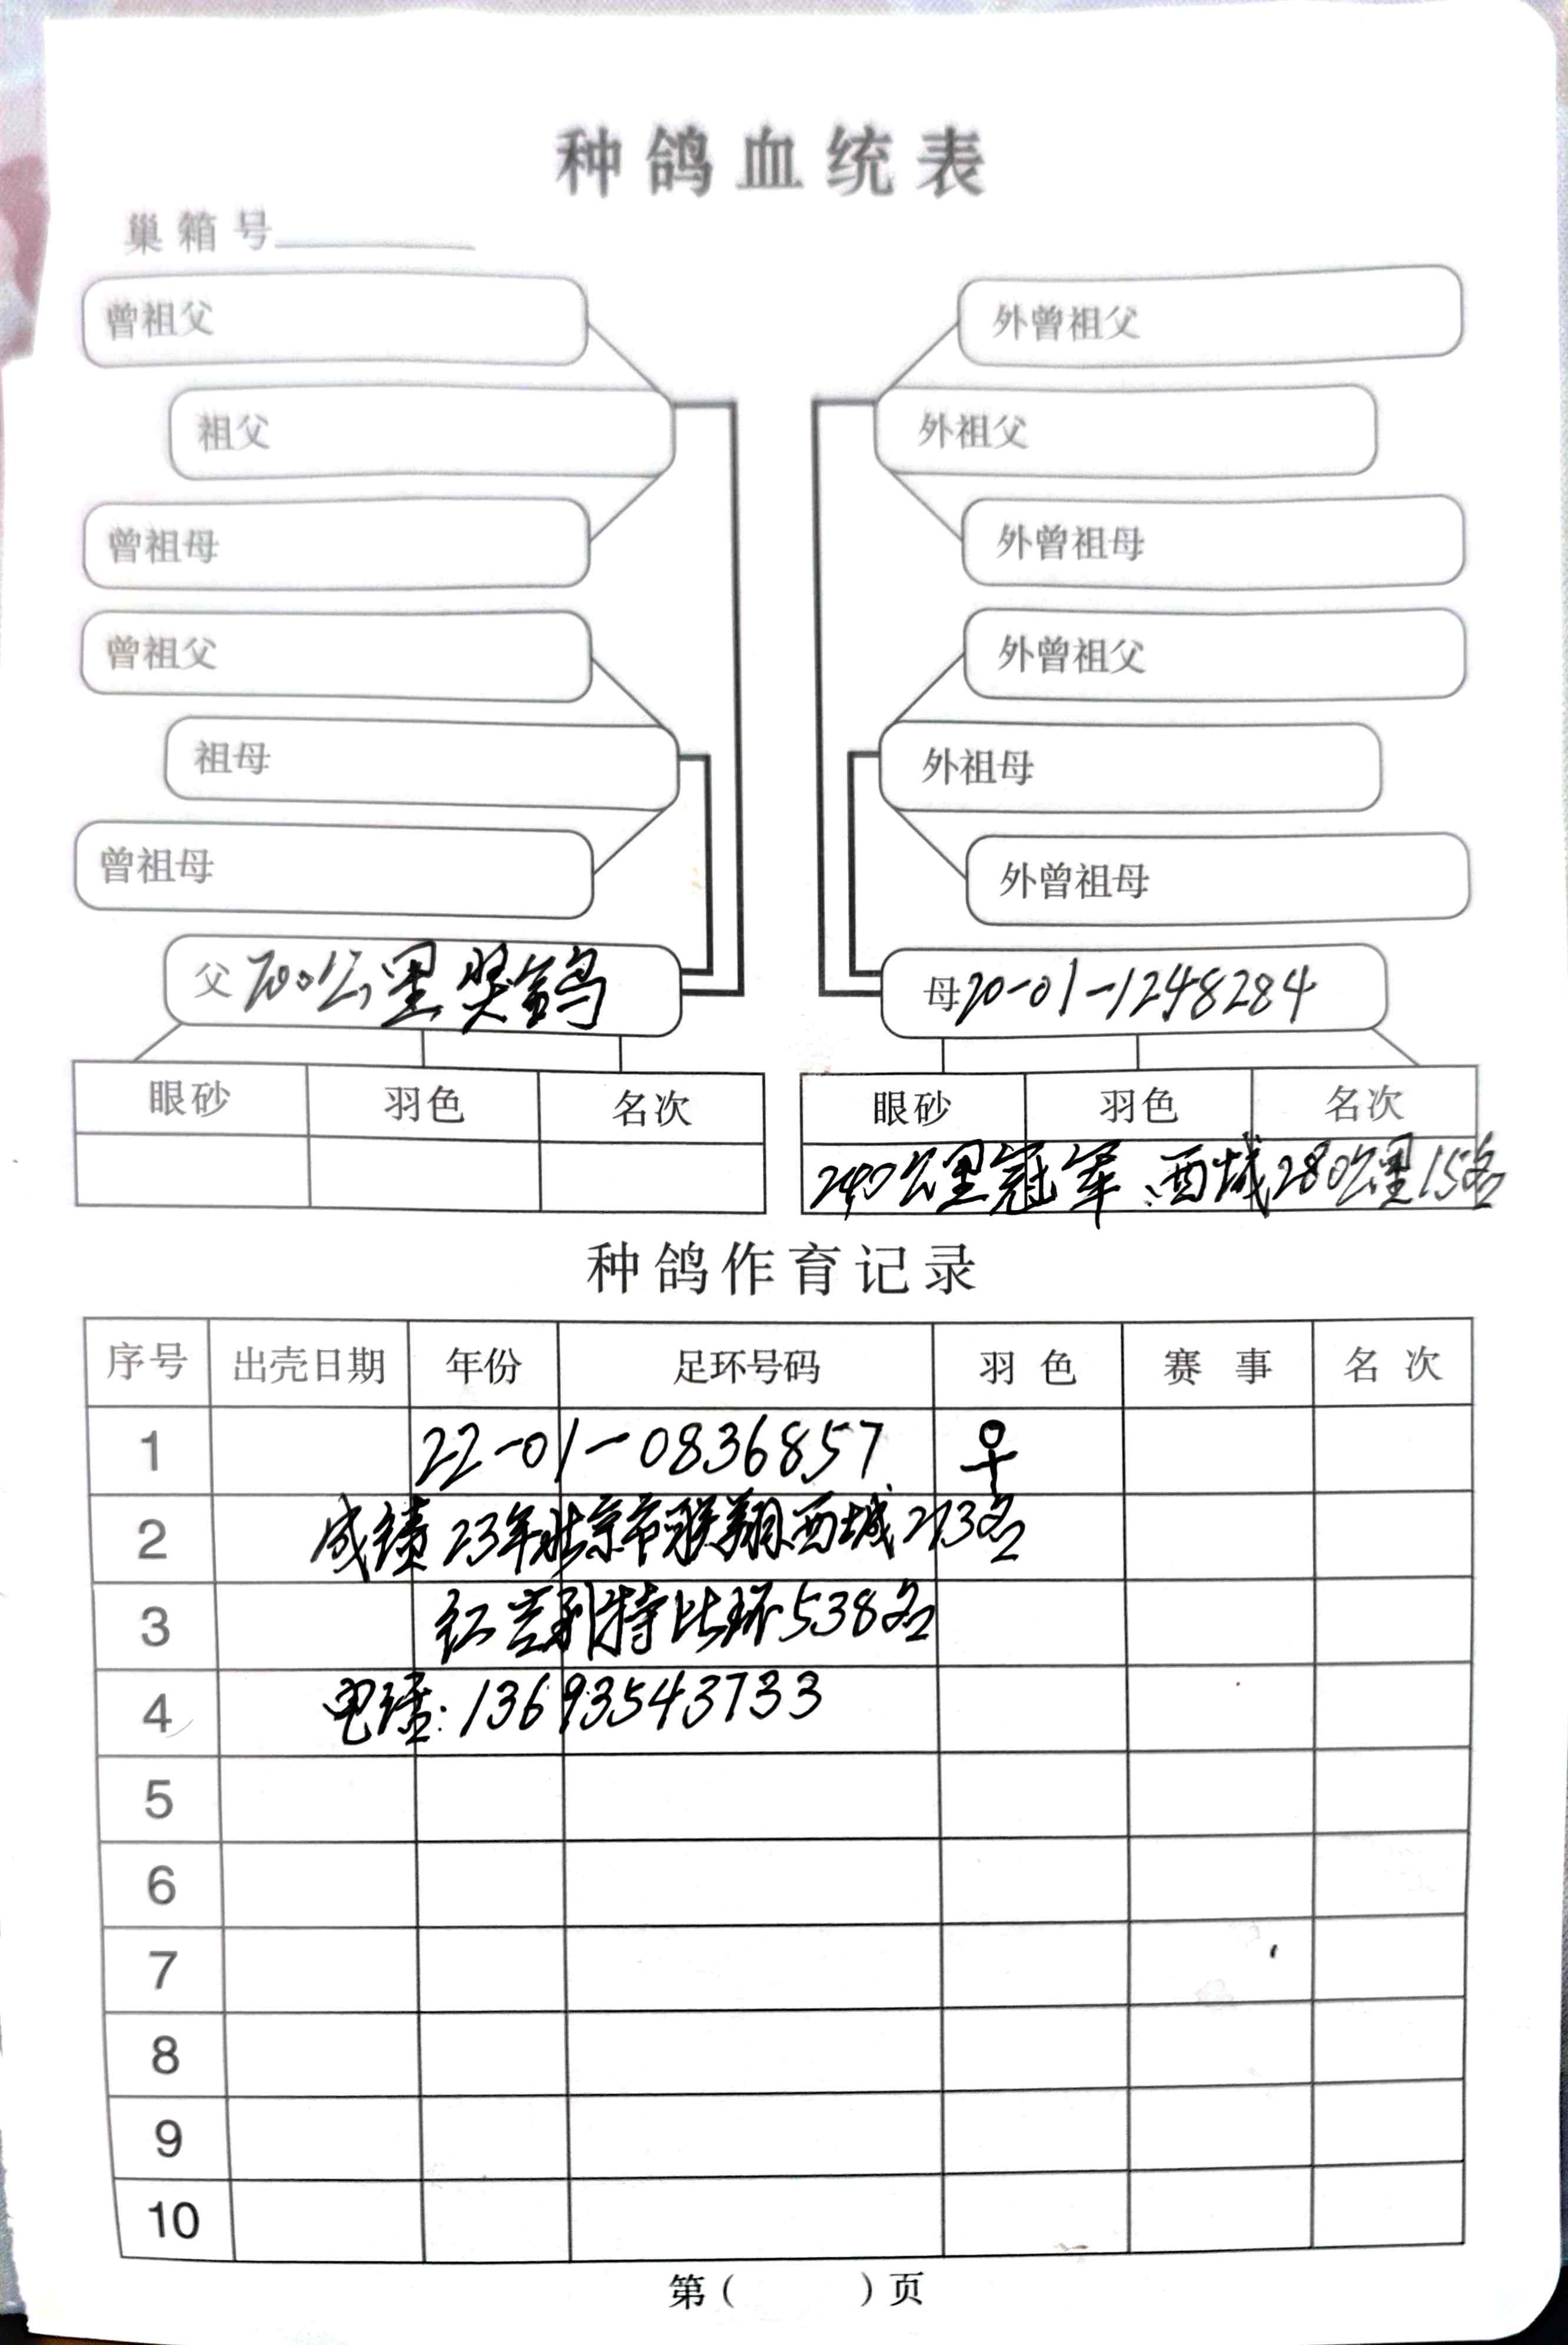 种鸽血统表
巢箱号
曾祖父
外曾祖父
祖父
外祖父
曾祖母
外曾祖母
曾祖父
外曾祖父
祖母
外祖母
曾祖母
外曾祖母
父 700公里奖鸽
母 20-01-1248284
眼砂 羽色 名次
眼砂 羽色 名次
240公里冠军、西城280公里15名
种鸽作育记录
序号 出壳日期 年份 足环号码 羽色 赛事 名次
1 22-01-0836857 ♀
2 成绩 23年北京市联翔西城273名
3 特比环538名
4 电话:13693543733
5
6
7
8
9
10
第( )页